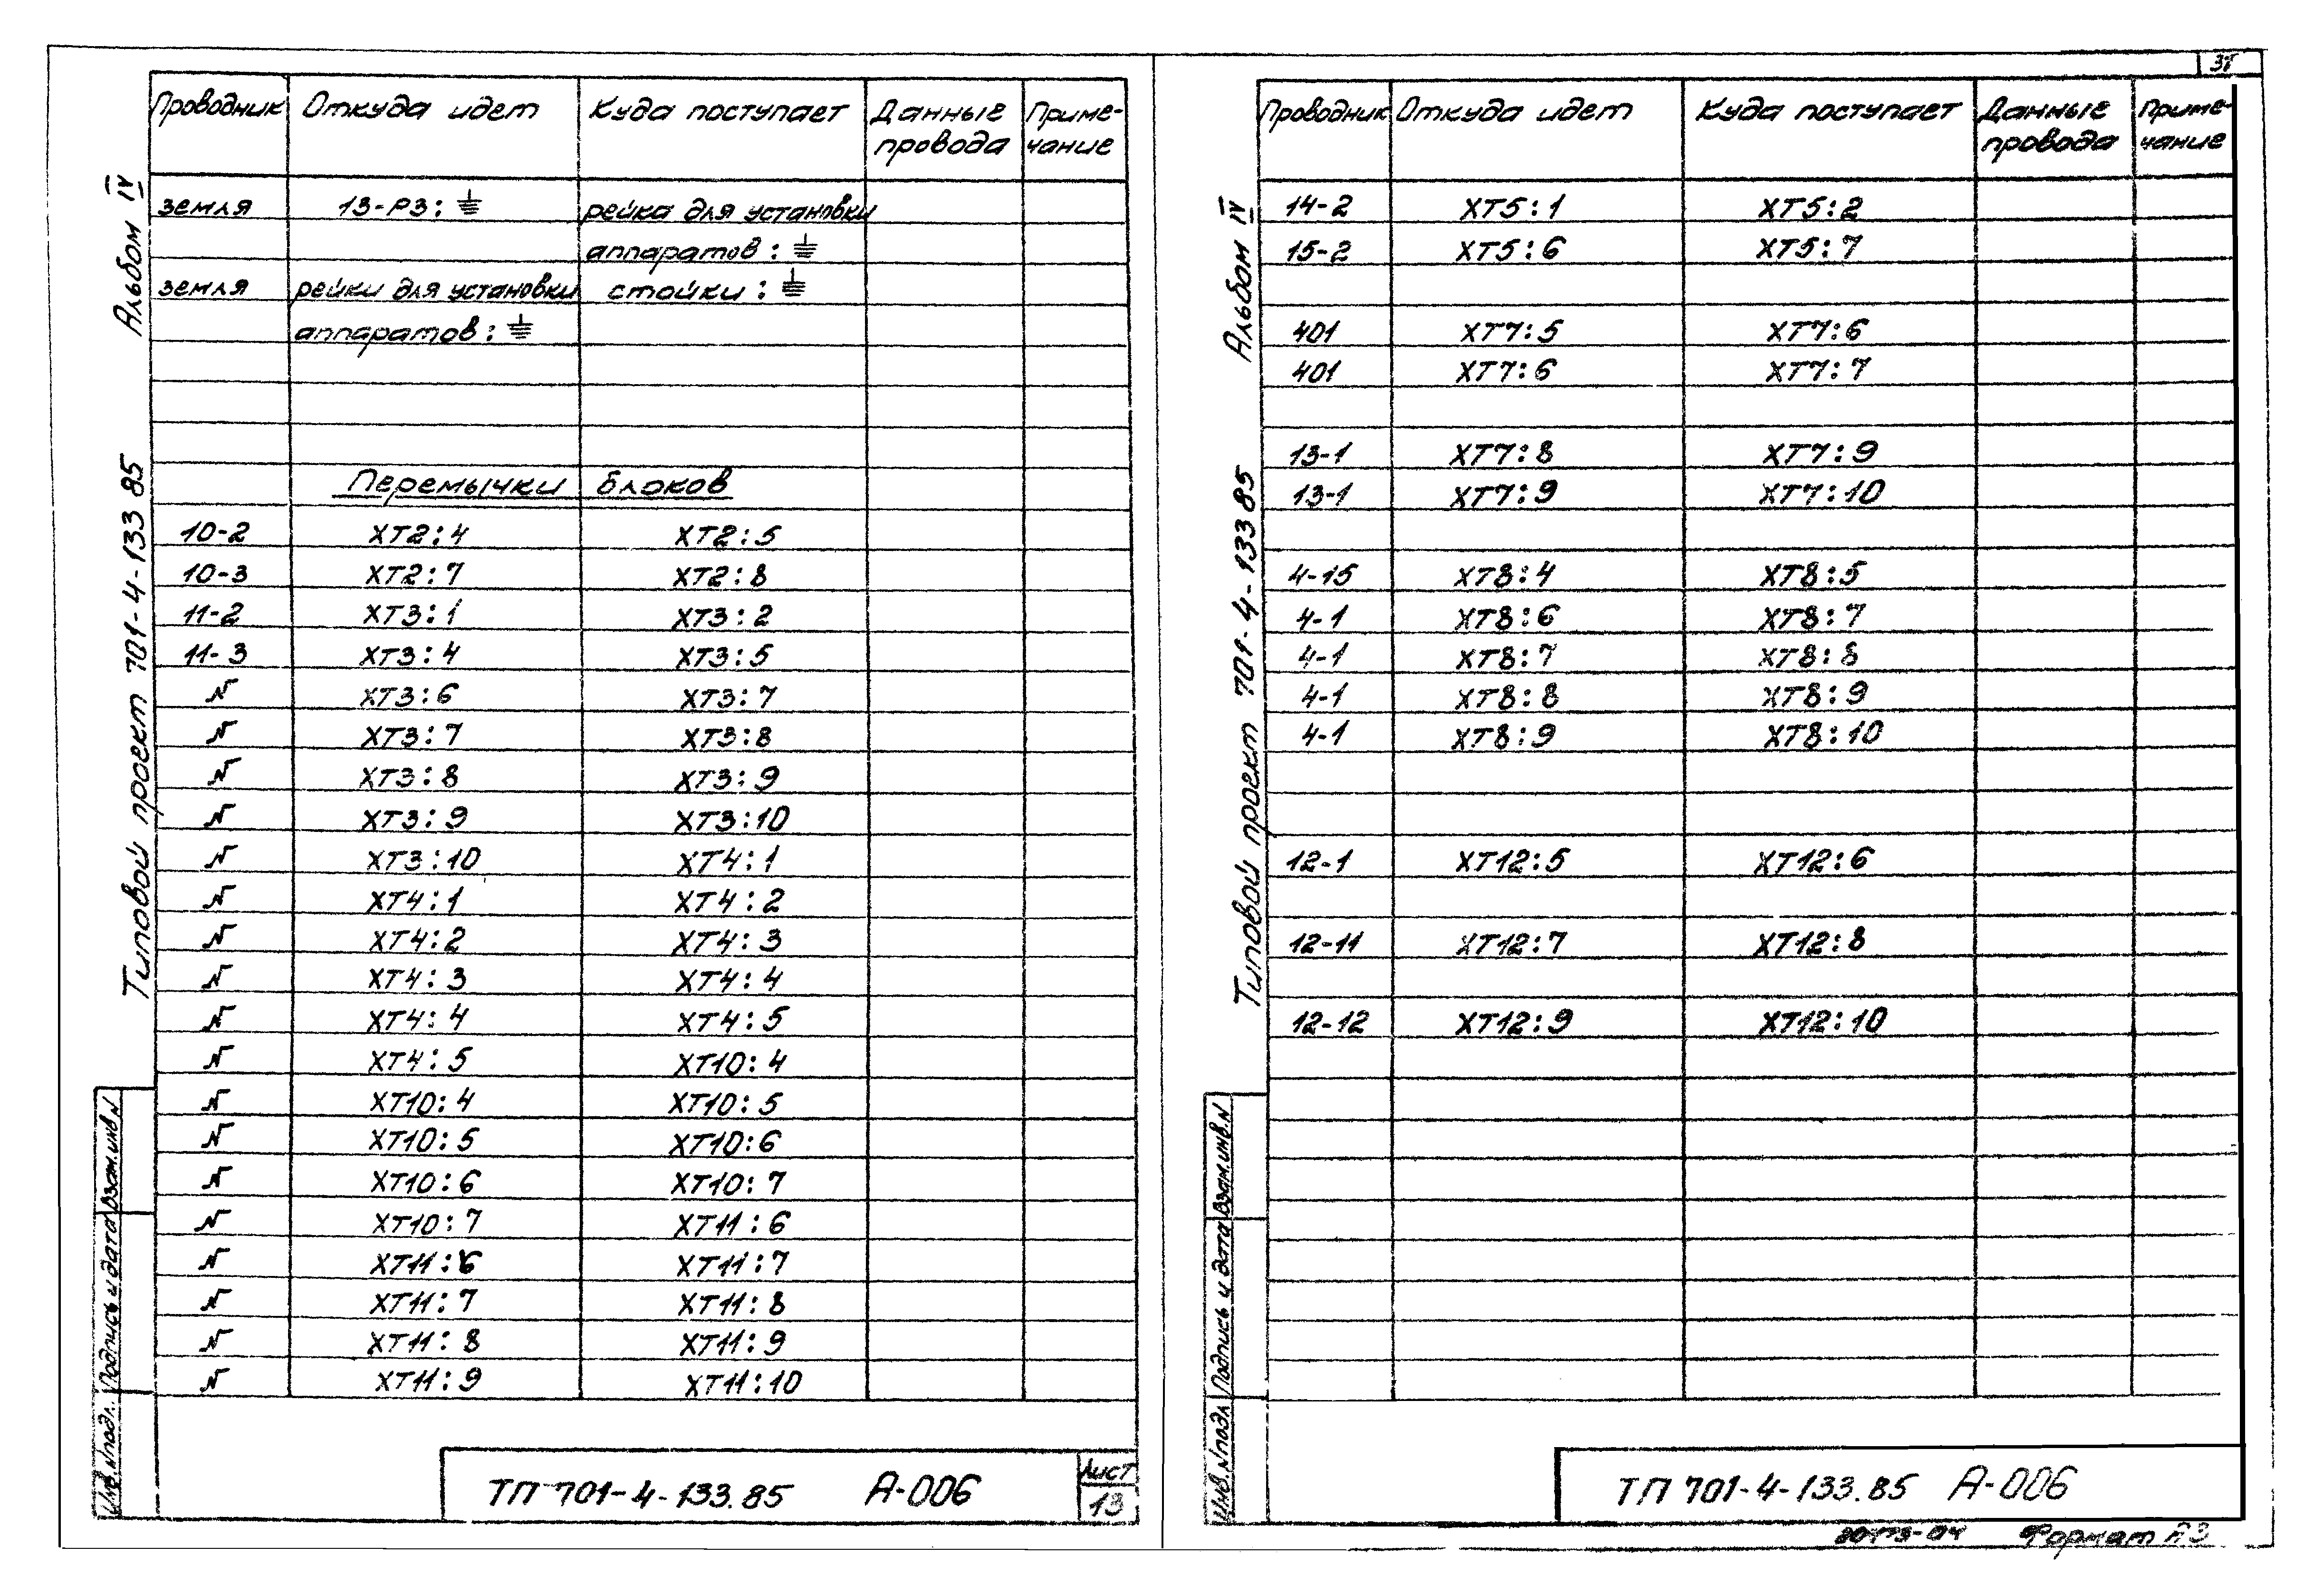 Проводник Откуда идет Куда поступает Данные провода Приме-чание
земля 13-Р3: рейка для установки
аппаратов:
земля рейки для установки стойки:
аппаратов:
Перемычки блоков
10-2 ХТ2:4 ХТ2:5
10-3 ХТ2:7 ХТ2:8
11-2 ХТ3:1 ХТ3:2
11-3 ХТ3:4 ХТ3:5
N ХТ3:6 ХТ3:7
N ХТ3:7 ХТ3:8
N ХТ3:8 ХТ3:9
N ХТ3:9 ХТ3:10
N ХТ3:10 ХТ4:1
N ХТ4:1 ХТ4:2
N ХТ4:2 ХТ4:3
N ХТ4:3 ХТ4:4
N ХТ4:4 ХТ4:5
N ХТ4:5 ХТ10:4
N ХТ10:4 ХТ10:5
N ХТ10:5 ХТ10:6
N ХТ10:6 ХТ10:7
N ХТ10:7 ХТ11:6
N ХТ11:6 ХТ11:7
N ХТ11:7 ХТ11:8
N ХТ11:8 ХТ11:9
N ХТ11:9 ХТ11:10
Типовой проект 701-4-133 85 Альбом IV
Инв. N подл. Подпись и дата Взам.инв.N
ТП 701-4-133.85 А-006
Лист
13
Проводник Откуда идет Куда поступает Данные провода Приме-чание
14-2 ХТ5:1 ХТ5:2
15-2 ХТ5:6 ХТ5:7
401 ХТ7:5 ХТ7:6
401 ХТ7:6 ХТ7:7
13-1 ХТ7:8 ХТ7:9
13-1 ХТ7:9 ХТ7:10
4-15 ХТ8:4 ХТ8:5
4-1 ХТ8:6 ХТ8:7
4-1 ХТ8:7 ХТ8:8
4-1 ХТ8:8 ХТ8:9
4-1 ХТ8:9 ХТ8:10
12-1 ХТ12:5 ХТ12:6
12-11 ХТ12:7 ХТ12:8
12-12 ХТ12:9 ХТ12:10
Типовой проект 701-4-133 85 Альбом IV
Инв. N подл Подпись и дата Взам.инв.N
ТП 701-4-133.85 А-006
Формат А3